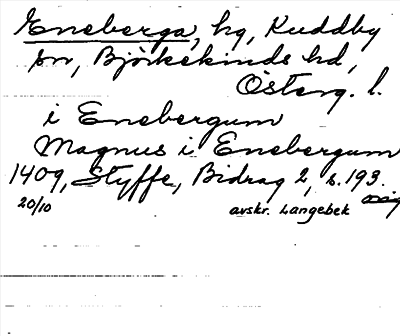 Eneberga, hg, Kuddby
sn, Björkekinds hd,
Österg. l.
i Enebergum
Magnus i Enebergum
1409, Styffe, Bidrag 2, s. 193.
20/10 avskr. Langebek